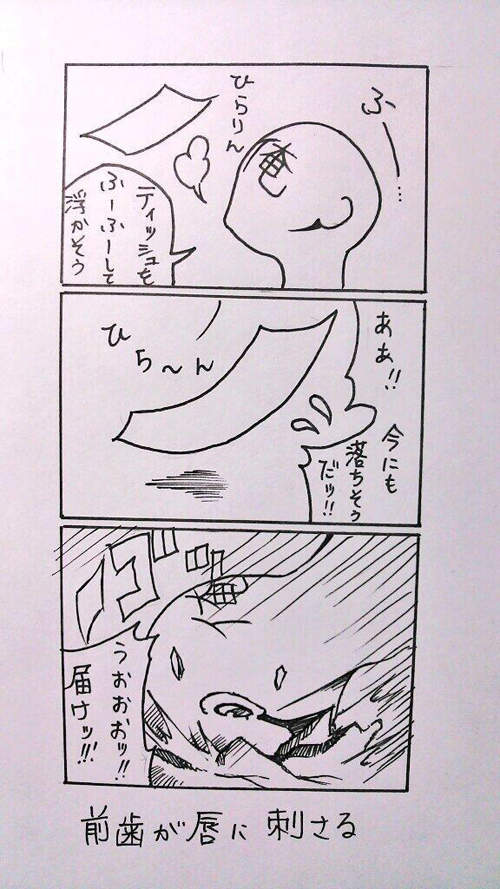 ふー…
ひらりん
ティッシュを
ふーふーして
浮かそう
ああ!!
今にも
落ちそう
だッ!!
ひら〜ん
うおおおッ!!
届けッ!!!
前歯が唇に刺さる